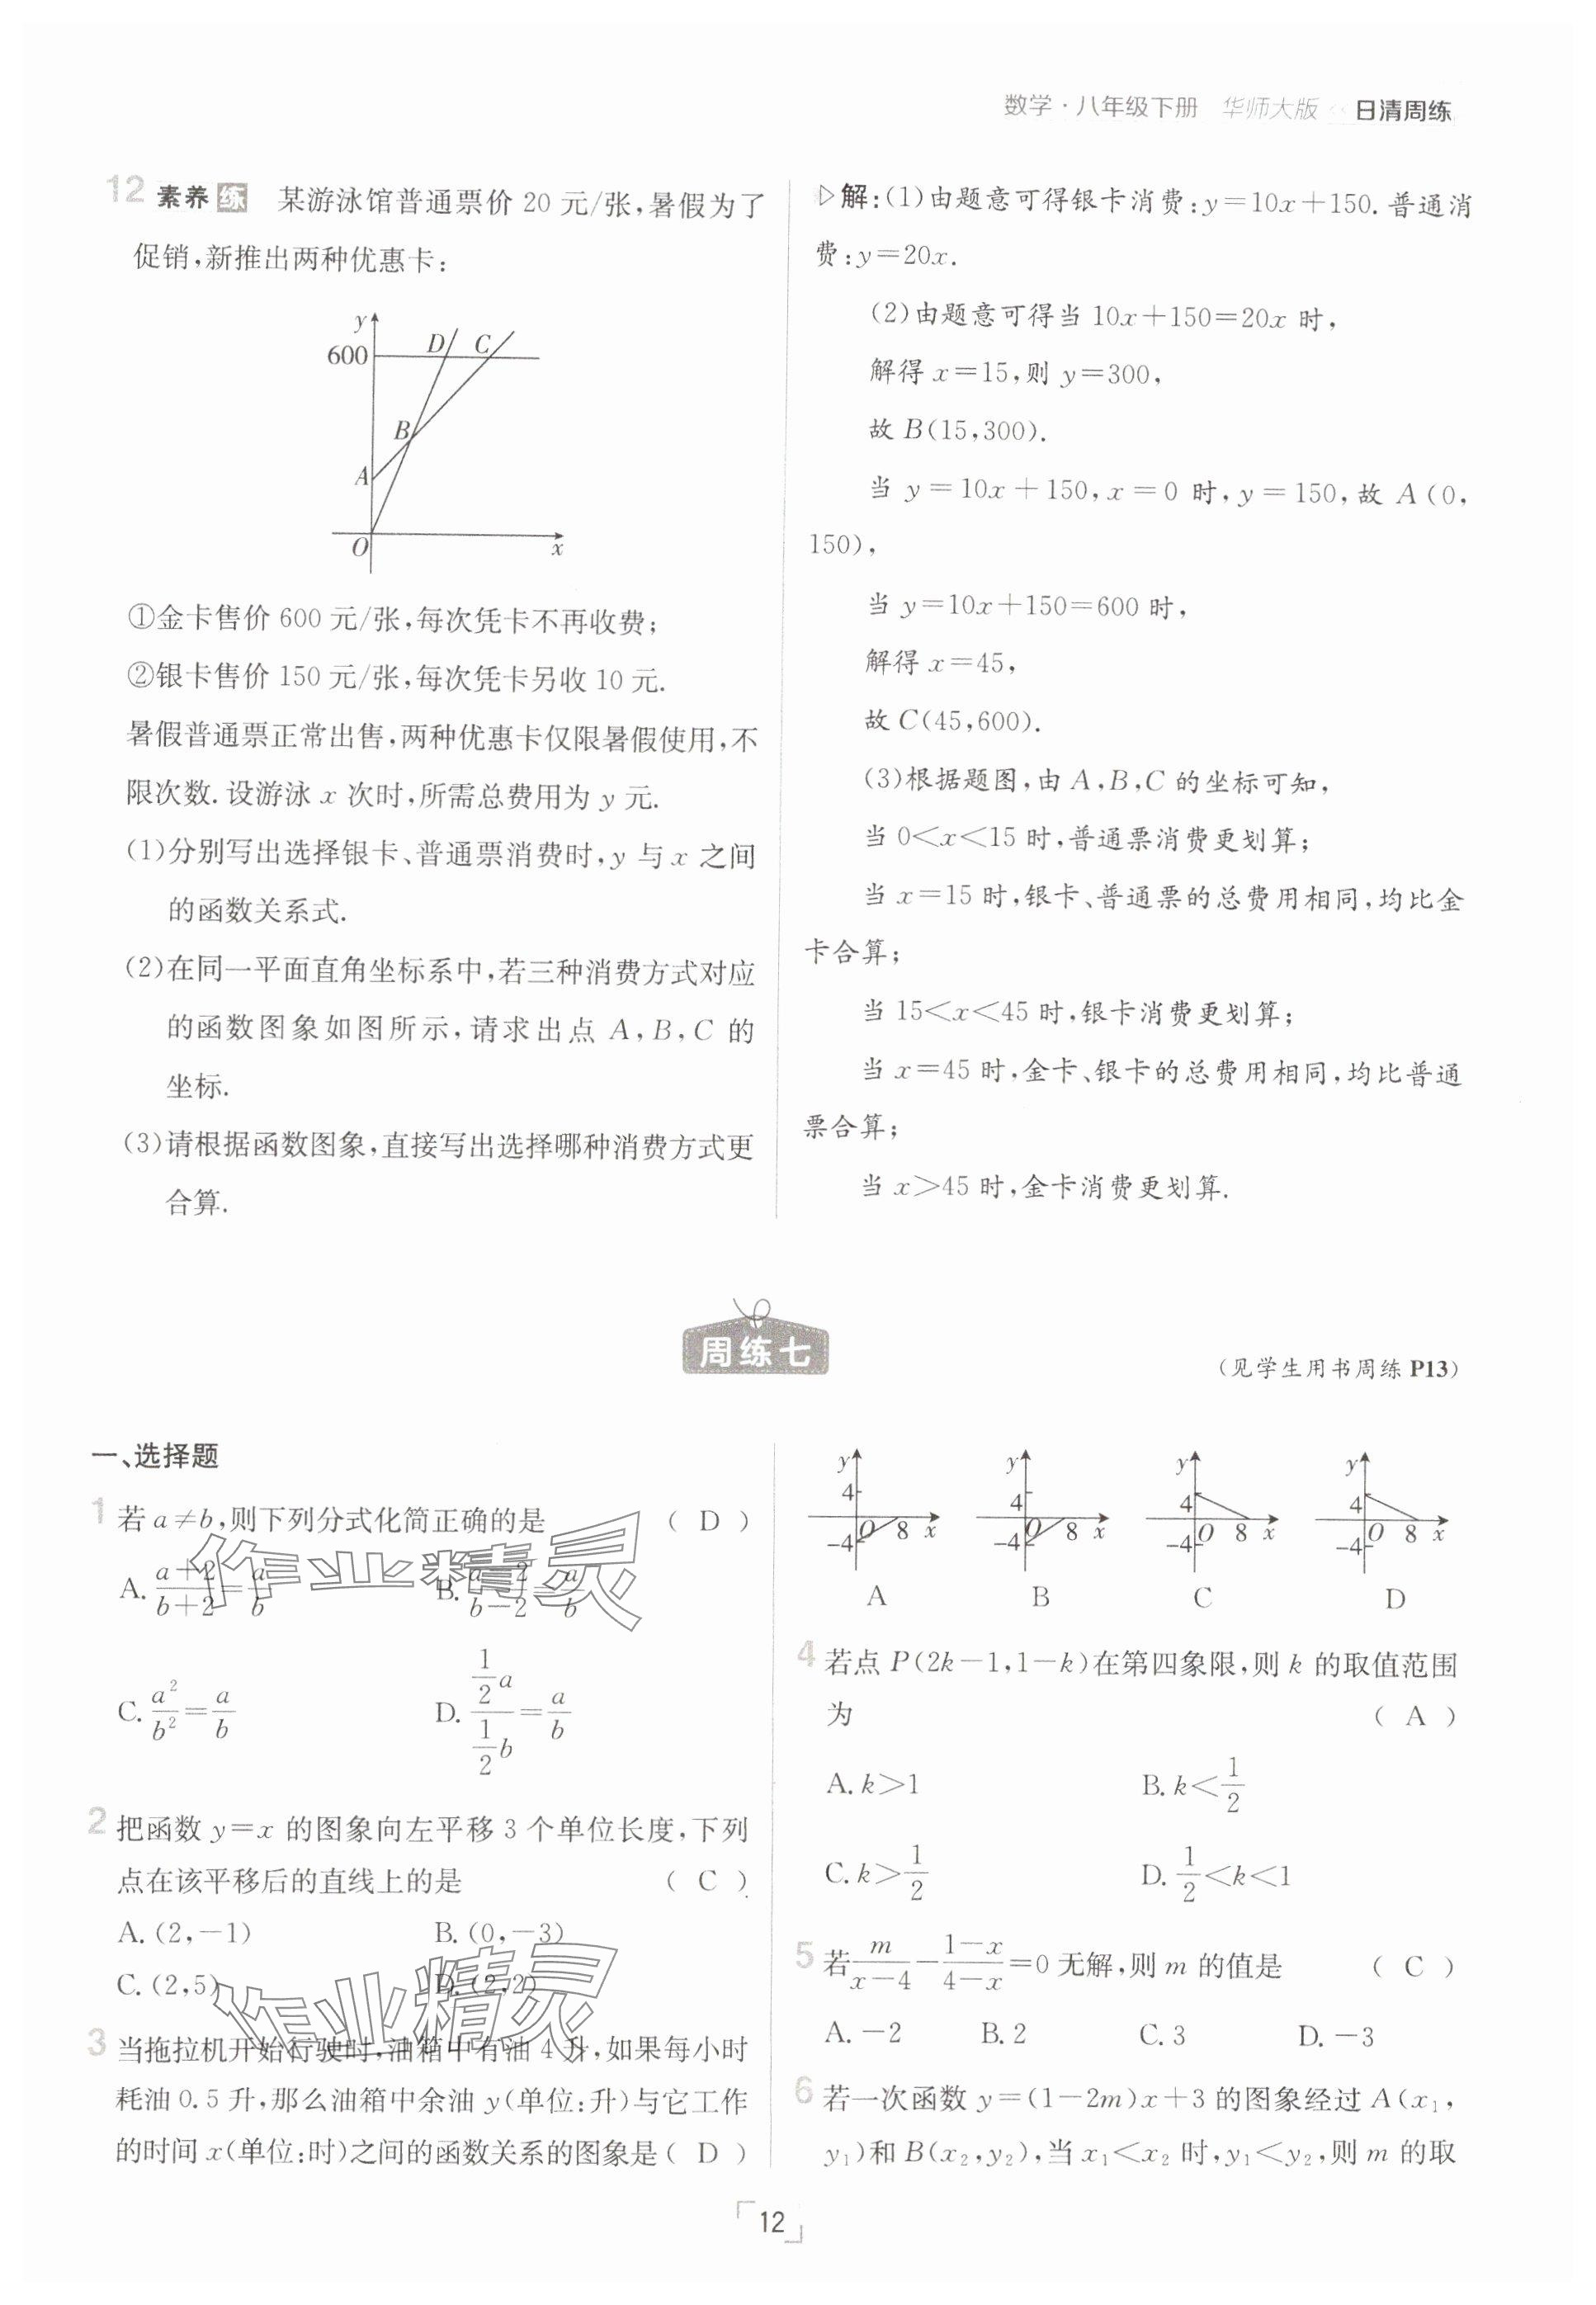 数学·八年级下册 华师大版 日清周练
12 素养 练 某游泳馆普通票价 20 元/张,暑假为了
促销,新推出两种优惠卡:
y
600
D
C
B
A
O
x
①金卡售价 600 元/张,每次凭卡不再收费;
②银卡售价 150 元/张,每次凭卡另收 10 元.
暑假普通票正常出售,两种优惠卡仅限暑假使用,不
限次数.设游泳 x 次时,所需总费用为 y 元.
(1)分别写出选择银卡、普通票消费时,y 与 x 之间
的函数关系式.
(2)在同一平面直角坐标系中,若三种消费方式对应
的函数图象如图所示,请求出点 A,B,C 的
坐标.
(3)请根据函数图象,直接写出选择哪种消费方式更
合算.
▷解:(1)由题意可得银卡消费:y=10x+150.普通消
费:y=20x.
(2)由题意可得当 10x+150=20x 时,
解得 x=15,则 y=300,
故 B(15,300).
当 y=10x+150,x=0 时,y=150,故 A(0,
150),
当 y=10x+150=600 时,
解得 x=45,
故 C(45,600).
(3)根据题图,由 A,B,C 的坐标可知,
当 0<x<15 时,普通票消费更划算;
当 x=15 时,银卡、普通票的总费用相同,均比金
卡合算;
当 15<x<45 时,银卡消费更划算;
当 x=45 时,金卡、银卡的总费用相同,均比普通
票合算;
当 x>45 时,金卡消费更划算.
周练七
(见学生用书周练 P13)
一、选择题
1 若 a≠b,则下列分式化简正确的是 ( D )
A. \frac{a+2}{b+2}=\frac{a}{b} B. \frac{a-2}{b-2}=\frac{a}{b}
作业精灵
C. \frac{a^2}{b^2}=\frac{a}{b} D. \frac{\frac{1}{2}a}{\frac{1}{2}b}=\frac{a}{b}
2 把函数 y=x 的图象向左平移 3 个单位长度,下列
点在该平移后的直线上的是 ( C )
A. (2,-1) B. (0,-3)
C. (2,5) D. (2,2)
作业精灵
3 当拖拉机开始行驶时,油箱中有油 4 升,如果每小时
耗油 0.5 升,那么油箱中余油 y(单位:升)与它工作
的时间 x(单位:时)之间的函数关系的图象是( D )
y y y y
4 4 4 4
O 8 x O 8 x O 8 x O 8 x
-4 -4 -4 -4
A B C D
4 若点 P(2k-1,1-k)在第四象限,则 k 的取值范围
为 ( A )
A. k>1 B. k<\frac{1}{2}
C. k>\frac{1}{2} D. \frac{1}{2}<k<1
5 若\frac{m}{x-4}-\frac{1-x}{4-x}=0 无解,则 m 的值是 ( C )
A. -2 B. 2 C. 3 D. -3
6 若一次函数 y=(1-2m)x+3 的图象经过 A(x₁,
y₁)和 B(x₂,y₂),当 x₁<x₂ 时,y₁<y₂,则 m 的取
12